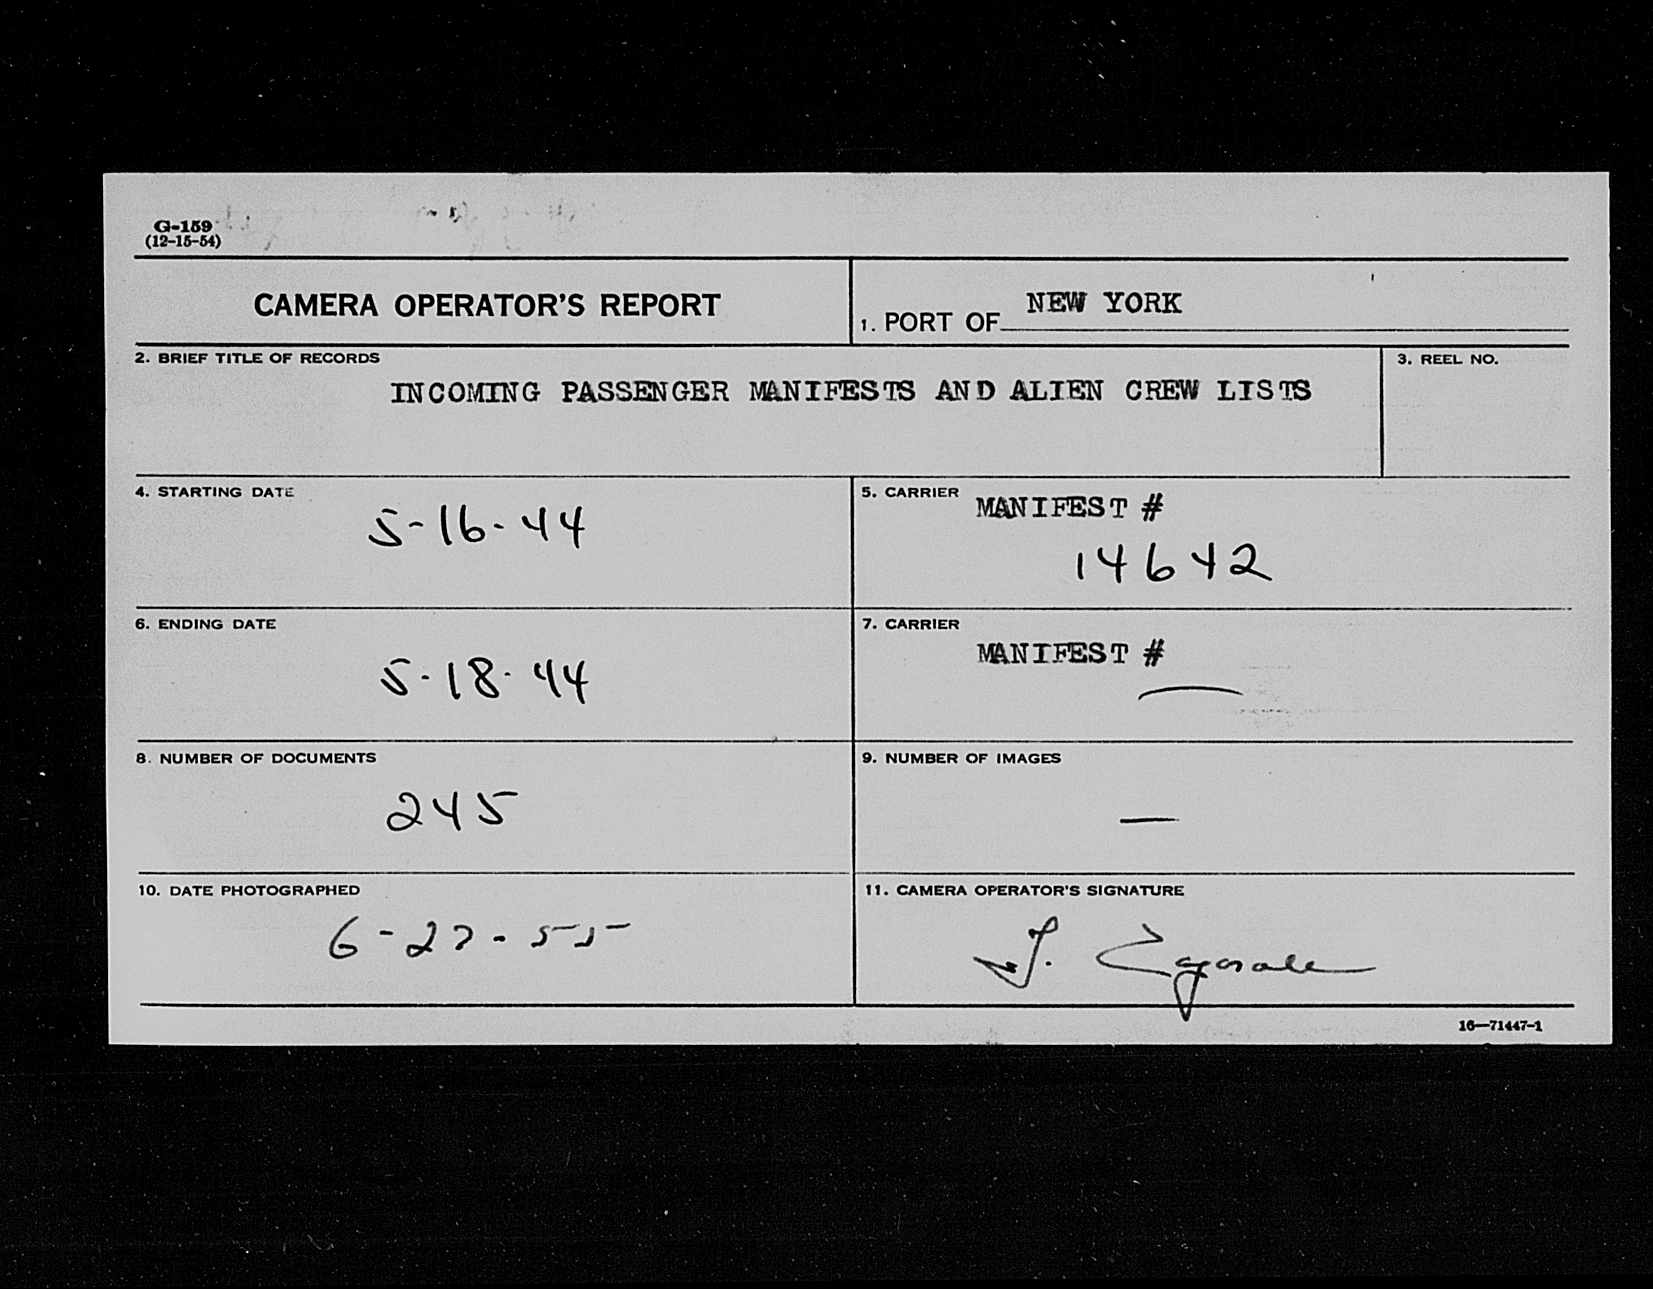 G-159
(12-15-54)
CAMERA OPERATOR'S REPORT
1. PORT OF NEW YORK
2. BRIEF TITLE OF RECORDS
INCOMING PASSENGER MANIFESTS AND ALIEN CREW LISTS
3. REEL NO.
4. STARTING DATE
5-16-44
5. CARRIER
MANIFEST #
14642
6. ENDING DATE
5-18-44
7. CARRIER
MANIFEST #
—
8. NUMBER OF DOCUMENTS
245
9. NUMBER OF IMAGES
—
10. DATE PHOTOGRAPHED
6-27-55
11. CAMERA OPERATOR'S SIGNATURE
16—71447-1